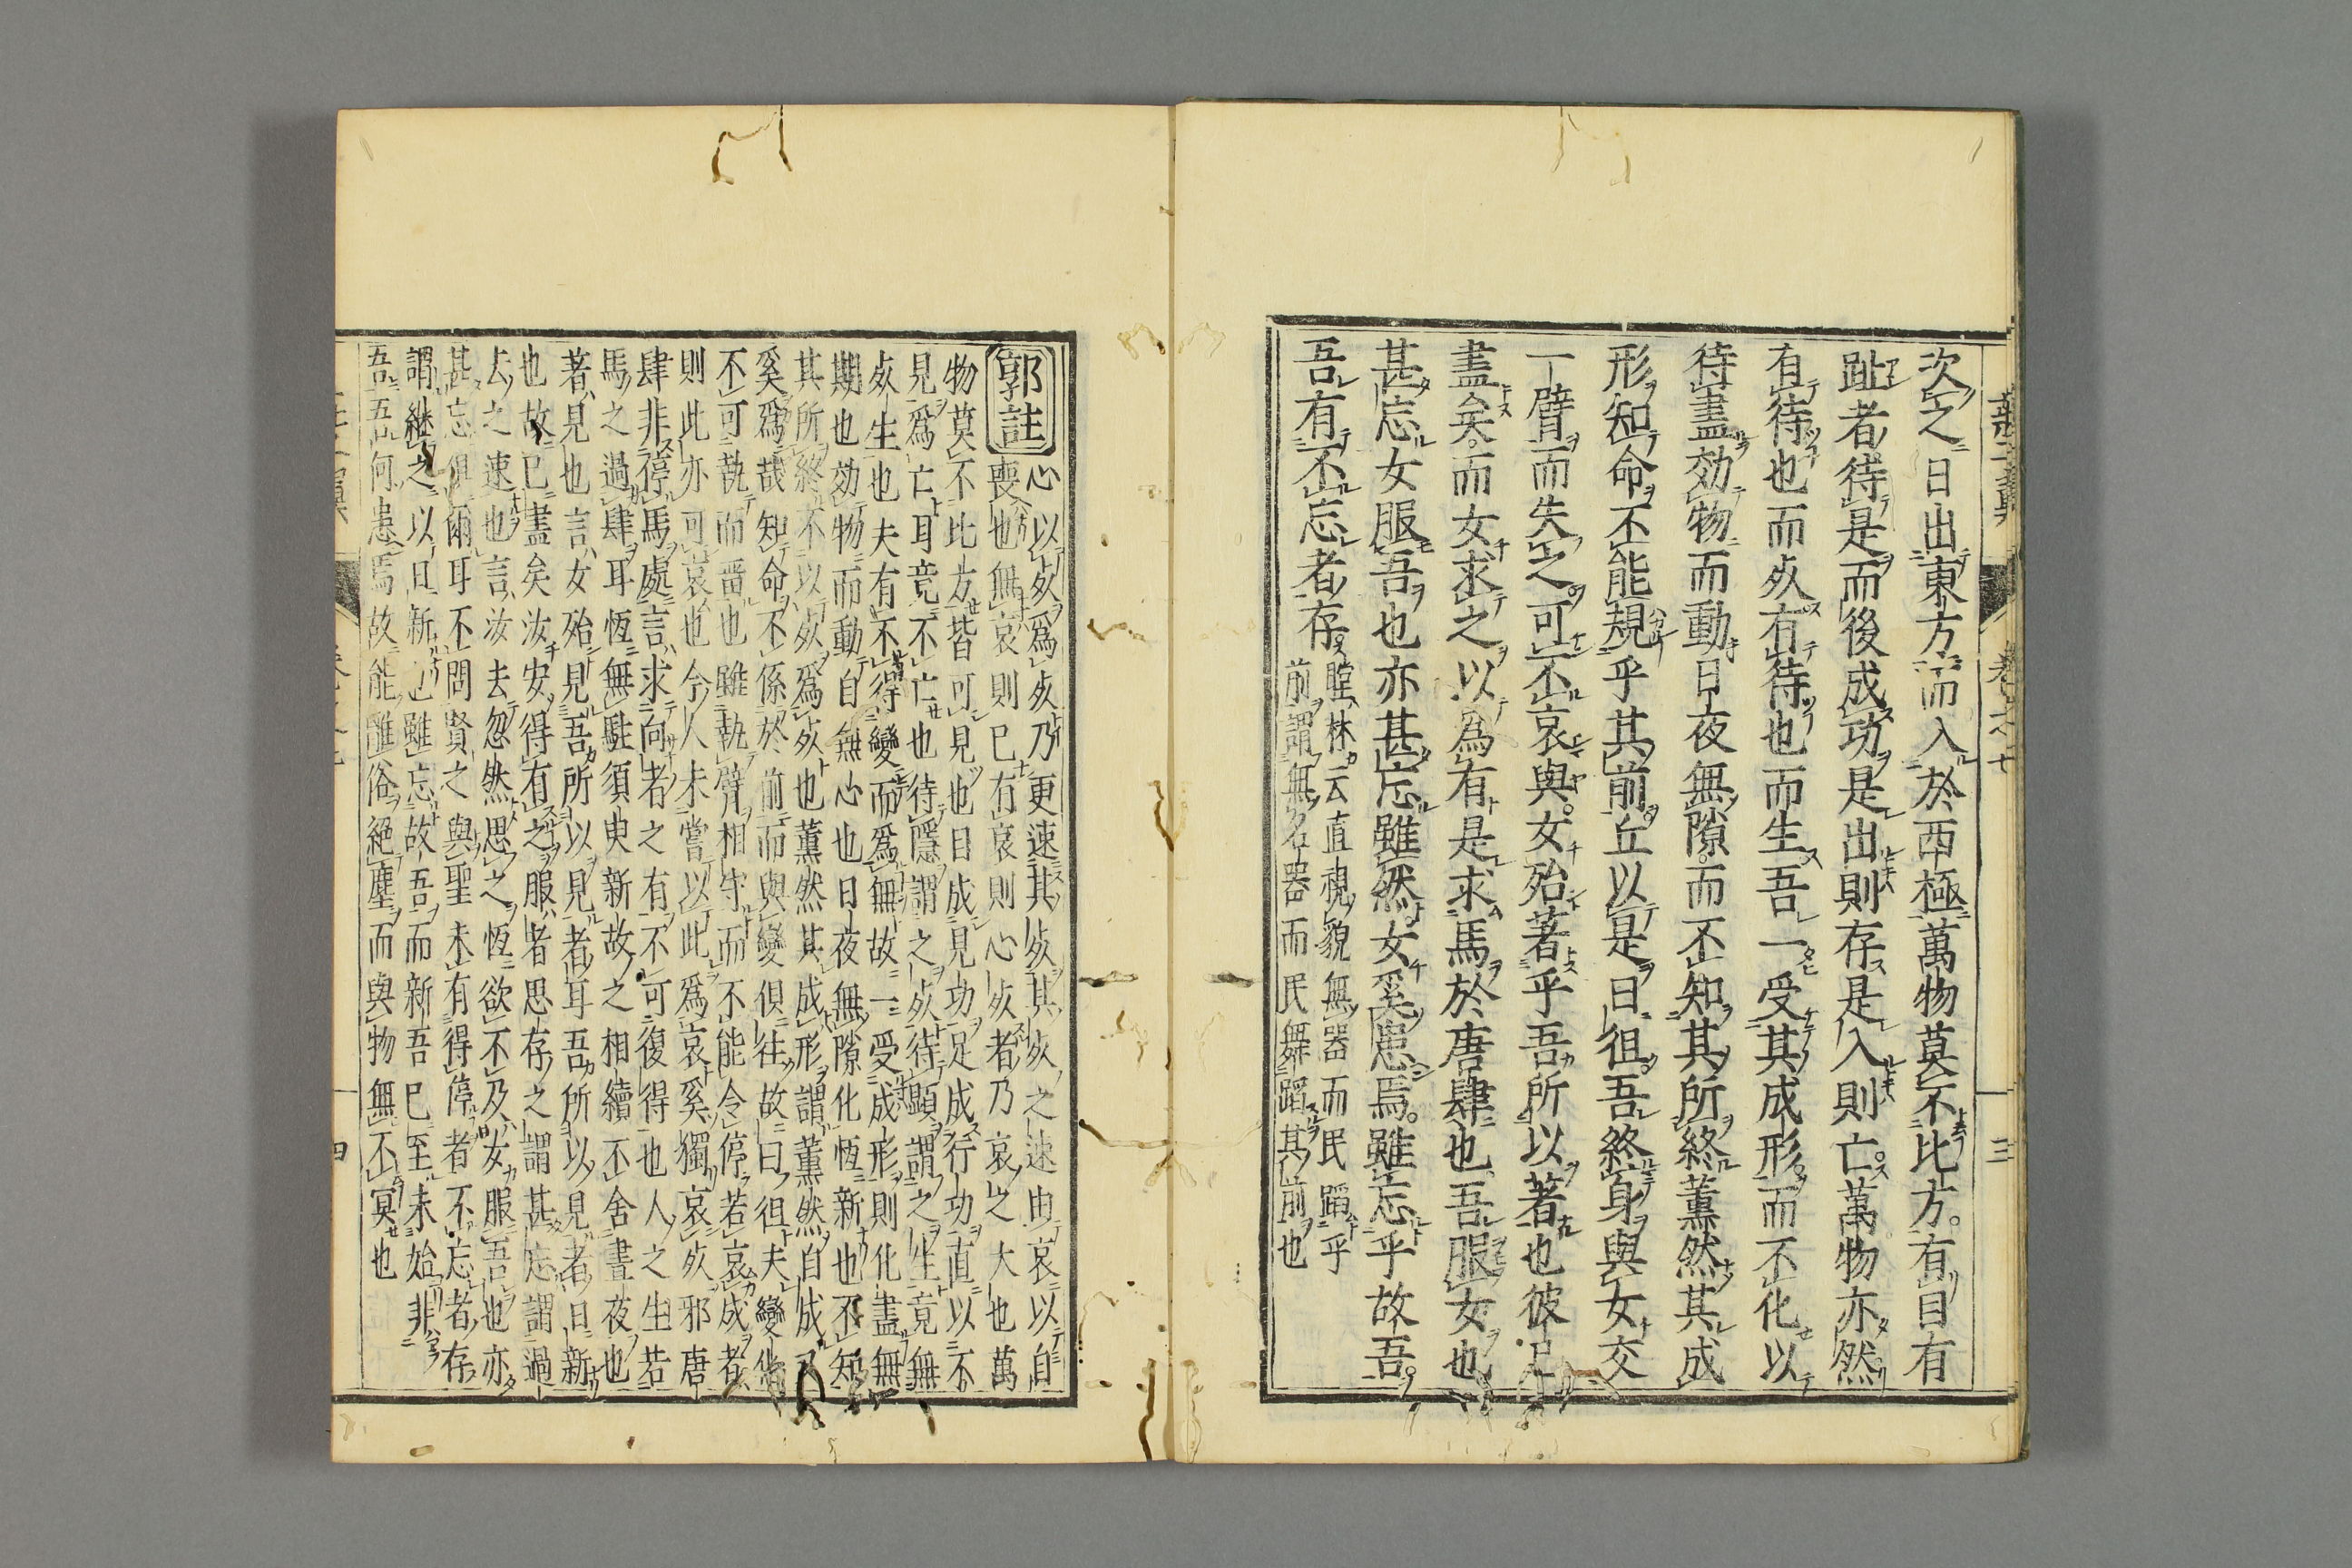 次之日出東方而入於西極萬物莫不比方。有目有
趾者待是而後成功是出則存是入則亡。萬物亦然
有待也而歿有待也而生吾一受其成形而不化以
待盡効物而動日夜無隙。而不知其所終薫然其成
形知命不能規乎其前。丘以是日徂。吾終身與女交
一臂而失之。可不哀與。女殆著乎吾所以著也彼已
盡矣。而女求之以為有是求馬於唐肆也。吾服女也
甚忘女服吾也亦甚忘雖然女奚患焉。雖忘乎故吾。
吾有不忘者存
瞠林云直視貌無器而民蹈乎
前謂無名器而民舞蹈其前也
三
郭註
心以歿爲歿乃更速其歿其歿之速由哀以自
喪也無哀則已有哀則心歿者乃哀之大也萬
物莫不比方皆可見也日成見功足成行功直以不
見爲亡耳竟不亡也待隱謂之歿待顯謂之生竟無
歿生也夫有不得變而爲無故一受成形則化盡無
期也効物而動自無心也日夜無隙化恆新也不知
其所終不以歿爲歿也薫然其成形謂薫然自成
奚爲哉知命不係於前而與變俱徃故曰徂夫變化
不可執而畱也雖執臂相守而不能令停若哀成者
則此亦可哀也今人未嘗以此爲哀奚獨哀歿邪唐
肆非停馬處言求向者之有不可復得也人之生若
馬之過肆耳恆無駐須臾新故之相續不舍晝夜也
著見也言女殆見吾所以見者耳吾所以見者日新
也故已盡矣汝安得有之服者思存之謂甚忘謂過
去之速也言汝去忽然思之恆欲不及女服吾也亦
甚忘俱爾耳不問賢之與聖未有得停者不忘者存
謂繼之以日新也雖忘故吾而新吾已至未始非
吾吾何患焉故能離俗絕塵而與物無不冥也
四